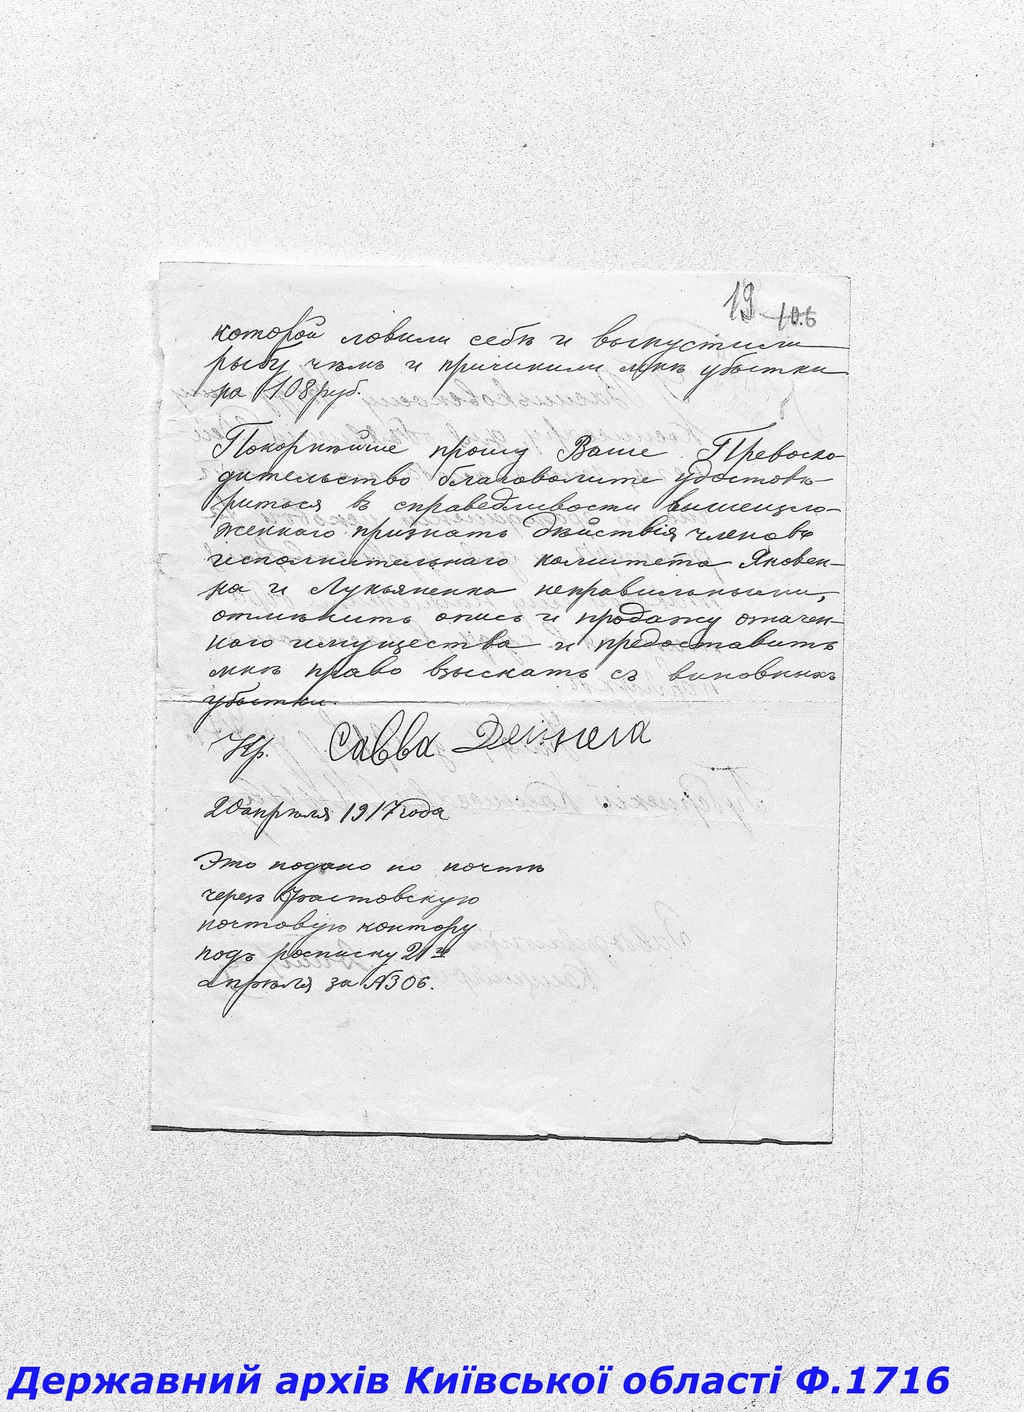 19 106
которой ловили себѣ и выпустили
рыбу чѣмъ и причинили мнѣ убытки
на 108 руб.
Покорнѣйше прошу Ваше Превосхо-
дительство благоволите удостовѣ-
риться въ справедливости вышеизло-
женнаго признать дѣйствія членовъ
исполнительнаго комитета Яковен-
ка и Лукьяненка неправильными,
отмѣнить опись и продажу означен-
наго имущества и предоставить
мнѣ право взыскать съ виновныхъ
убытки.
Кр. Савва Дейнега
20 апрѣля 1917 года
Это подано по почтѣ
черезъ Фастовскую
почтовую контору
подъ росписку 21го
апрѣля за №306.
Державний архів Київської області Ф.1716